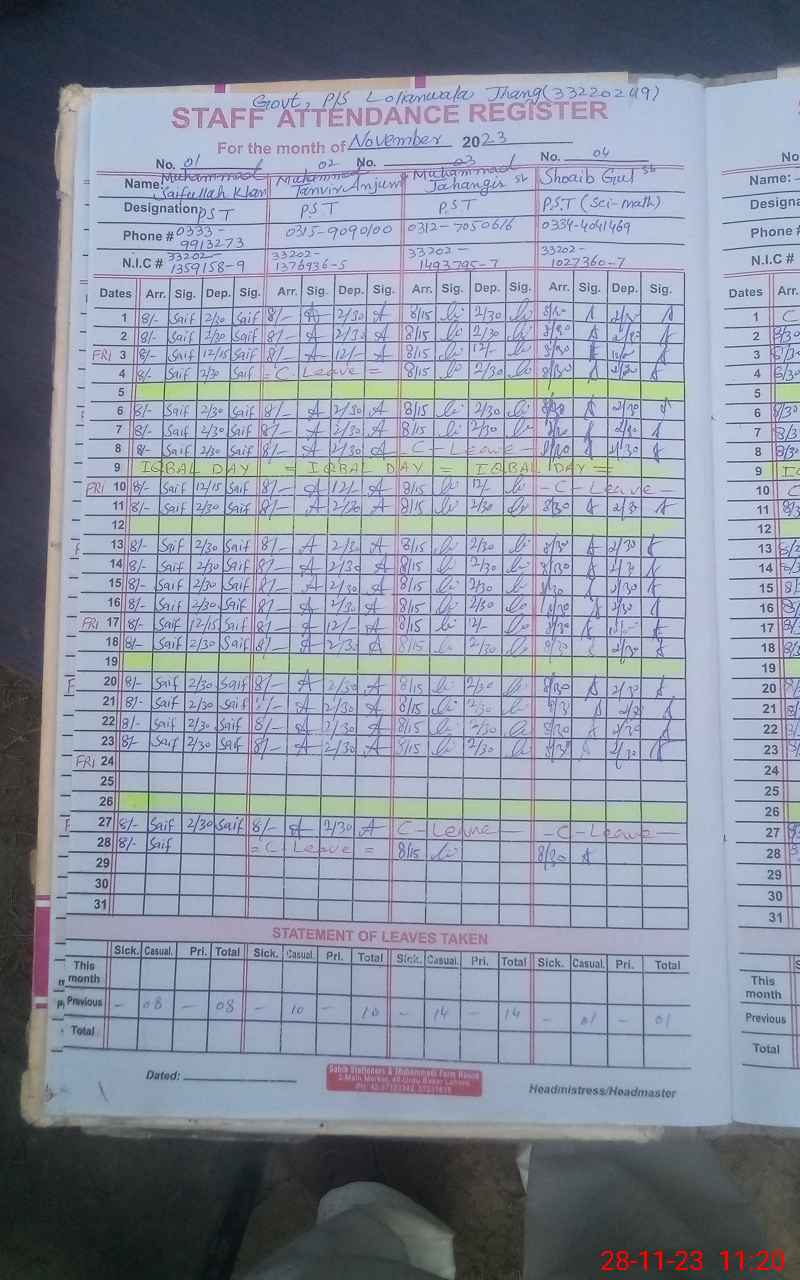 Govt, P/S Lohanwala Jhang (33220249)
STAFF ATTENDANCE REGISTER
For the month of November 2023
No. 01 02 No. 03 No. 04
Name: Muhammad Saifullah Khan Muhammad Tanvir Anjum Muhammad Jahangir sb Shoaib Gul sb
Designation PST P.S.T P.S.T P.S.T (Sci-math)
Phone # 0333-9913273 0315-9090100 0312-7050616 0334-4041469
N.I.C # 33202-1359158-9 33202-1376936-5 33202-1493795-7 33202-1027360-7
Dates Arr. Sig. Dep. Sig. Arr. Sig. Dep. Sig. Arr. Sig. Dep. Sig. Arr. Sig. Dep. Sig.
1 8/- Saif 2/30 Saif 8/- A 2/30 A 8/15 2/30 8/30 2/30
2 8/- Saif 2/30 Saif 8/- A 2/30 A 8/15 2/30 8/30 2/30
FRI 3 8/- Saif 12/15 Saif 8/- A 12/- A 8/15 12/- 8/30
4 8/- Saif 2/30 Saif = C Leave = 8/15 2/30 8/30 2/30
5
6 8/- Saif 2/30 Saif 8/- A 2/30 A 8/15 2/30 8/30 2/30
7 8/- Saif 2/30 Saif 8/- A 2/30 A 8/15 2/30 2/30
8 8/- Saif 2/30 Saif 8/- A 2/30 A - C - Leave - 8/30 2/30
9 IQBAL DAY = IQBAL DAY = IQBAL DAY =
FRI 10 8/- Saif 12/15 Saif 8/- A 12/- A 8/15 12/- - C - Leave -
11 8/- Saif 2/30 Saif 8/- A 2/30 A 8/15 2/30 8/30 2/30
12
13 8/- Saif 2/30 Saif 8/- A 2/30 A 8/15 2/30 8/30 2/30
14 8/- Saif 2/30 Saif 8/- A 2/30 A 8/15 2/30 8/30 2/30
15 8/- Saif 2/30 Saif 8/- A 2/30 A 8/15 2/30 8/30 2/30
16 8/- Saif 2/30 Saif 8/- A 2/30 A 8/15 2/30 2/30
FRI 17 8/- Saif 12/15 Saif 8/- A 12/- A 8/15 12/- 8/30
18 8/- Saif 2/30 Saif 8/- A 2/30 A 8/15 2/30 8/30 2/30
19
20 8/- Saif 2/30 Saif 8/- A 2/30 A 8/15 2/30 8/30 2/30
21 8/- Saif 2/30 Saif A 2/30 A 8/15 2/30 2/30
22 8/- Saif 2/30 Saif 8/- A 2/30 A 8/15 2/30 8/30 2/30
23 8/- Saif 2/30 Saif 8/- A 2/30 A 8/15 2/30 8/30 2/30
FRI 24
25
26
27 8/- Saif 2/30 Saif 8/- A 2/30 A C - Leave - C - Leave -
28 8/- Saif = C - Leave = 8/15 8/30
29
30
31
STATEMENT OF LEAVES TAKEN
Sick. Casual. Pri. Total Sick. Casual. Pri. Total Sick. Casual. Pri. Total Sick. Casual. Pri. Total
This month
Previous - 08 - 08 - 10 - 10 - 14 - 14 - 01 - 01
Total
Dated:
Headmistress/Headmaster
No.
Name:
Designa
Phone #
N.I.C #
Dates Arr.
This month
Previous
Total
28-11-23 11:20